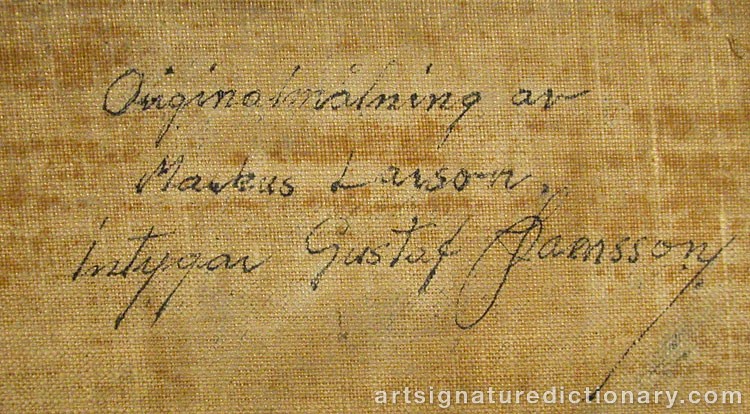 Originalmålning av
Markus Larson.
intygar Gustaf
artsignaturedictionary.com